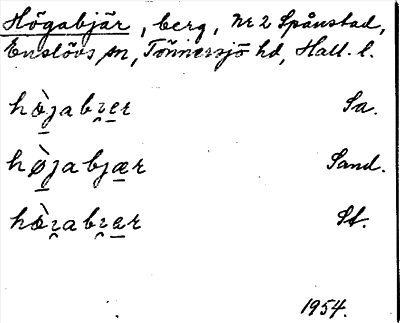 Högabjär, berg, Nr 2 Spånstad,
Enslövs sn, Tönnersjö hd, Hall. l.
hø̀jabi̯ær Sa.
hø̀jabjær Sand.
hø̀i̯abi̯ær St.
1954.